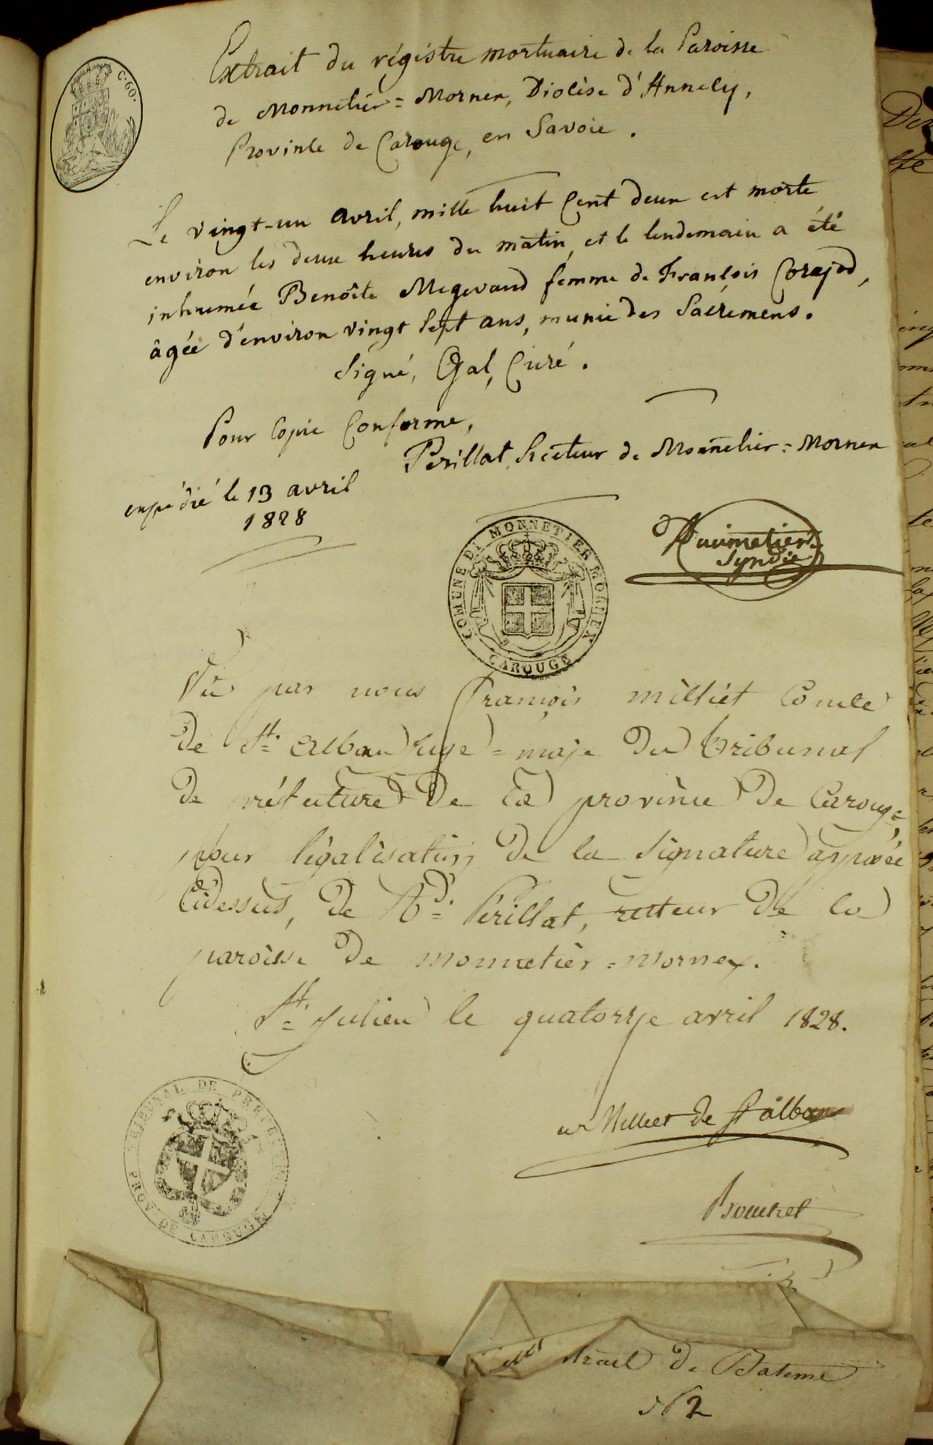 C. 60.
Extrait du régistre mortuaire de la Paroisse
de Monnetier = Mornex, Diocèse d'Annecy,
Province de Carouge, en Savoie.
Le vingt-un avril, mille huit Cent deux est morte
environ les deux heures du matin, et le lendemain a été
inhumée Benoîte Megevand femme de François Corajod,
âgée d'environ vingt sept ans, munie des Sacremens.
Signé, Gal, Curé.
Pour Copie Conforme,
Périllat, Recteur de Monnetier = Mornex
expédié le 13 avril
1828
Syndic
COMUNE DI MONNETIER MORNEX
CAROUGE
Vû par nous François milliet Comte
de St. Alban Juge = maje du tribunal
de préfecture de la province de Carouge
pour légalisation de la Signature apposée
Cidessus, de Rd. Périllat, recteur de la
paroisse de monnetier = mornex.
St. Julien le quatorze avril 1828.
Milliet de St alban
TRIBUNAL DE PREFECT
PROV. DE CAROUGE
Bouchet
de Batême
562